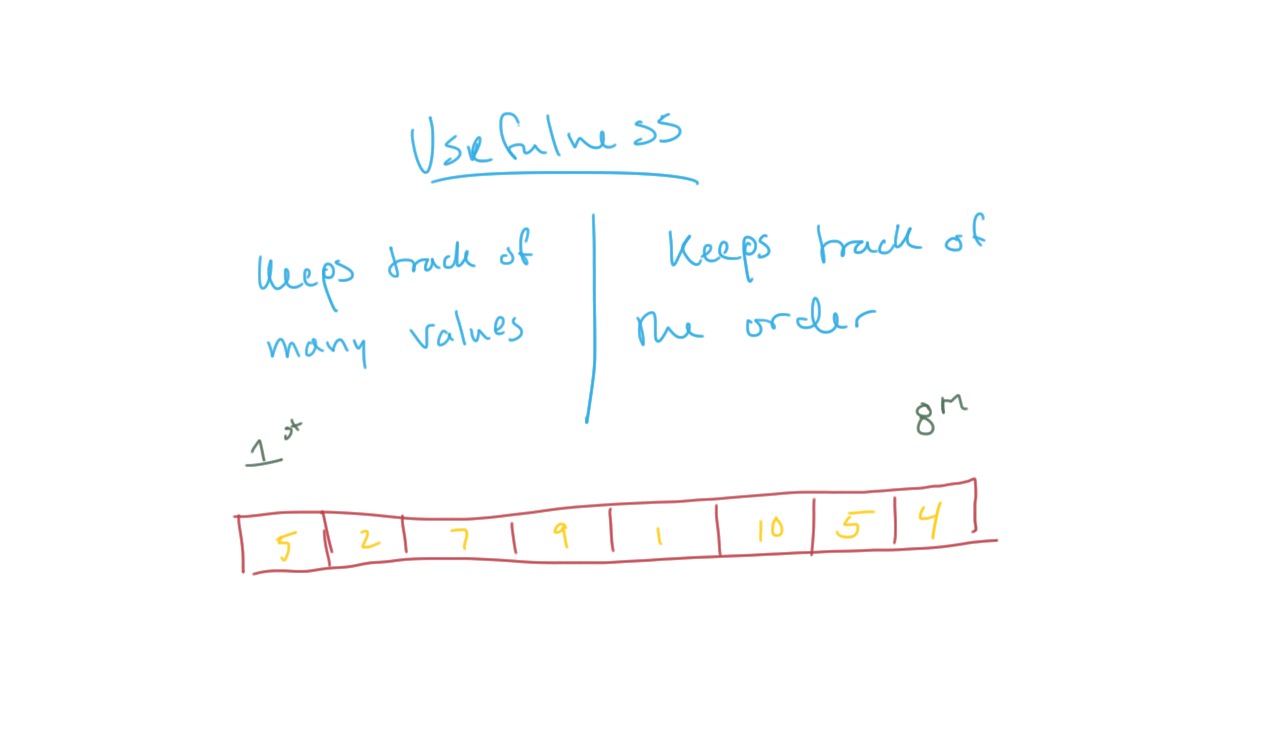 Usefulness
Keeps track of
many values
Keeps track of
the order
1st
8th
5 2 7 9 1 10 5 4